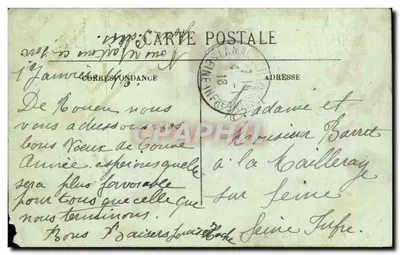 CARTE POSTALE
CORRESPONDANCE
ADRESSE
Nous repartons ce soir
Janvier
De Rouen nous
vous adressons nos
bons Vœux de Bonne
Année. espérons quelle
sera plus favorable
pour tous que celle que
nous terminons.
Bons Baisers Louise Hoche
Madame et
Monsieur Barret
à la Mailleraye
sur Seine
Seine Infre.
CPAPHIL.COM